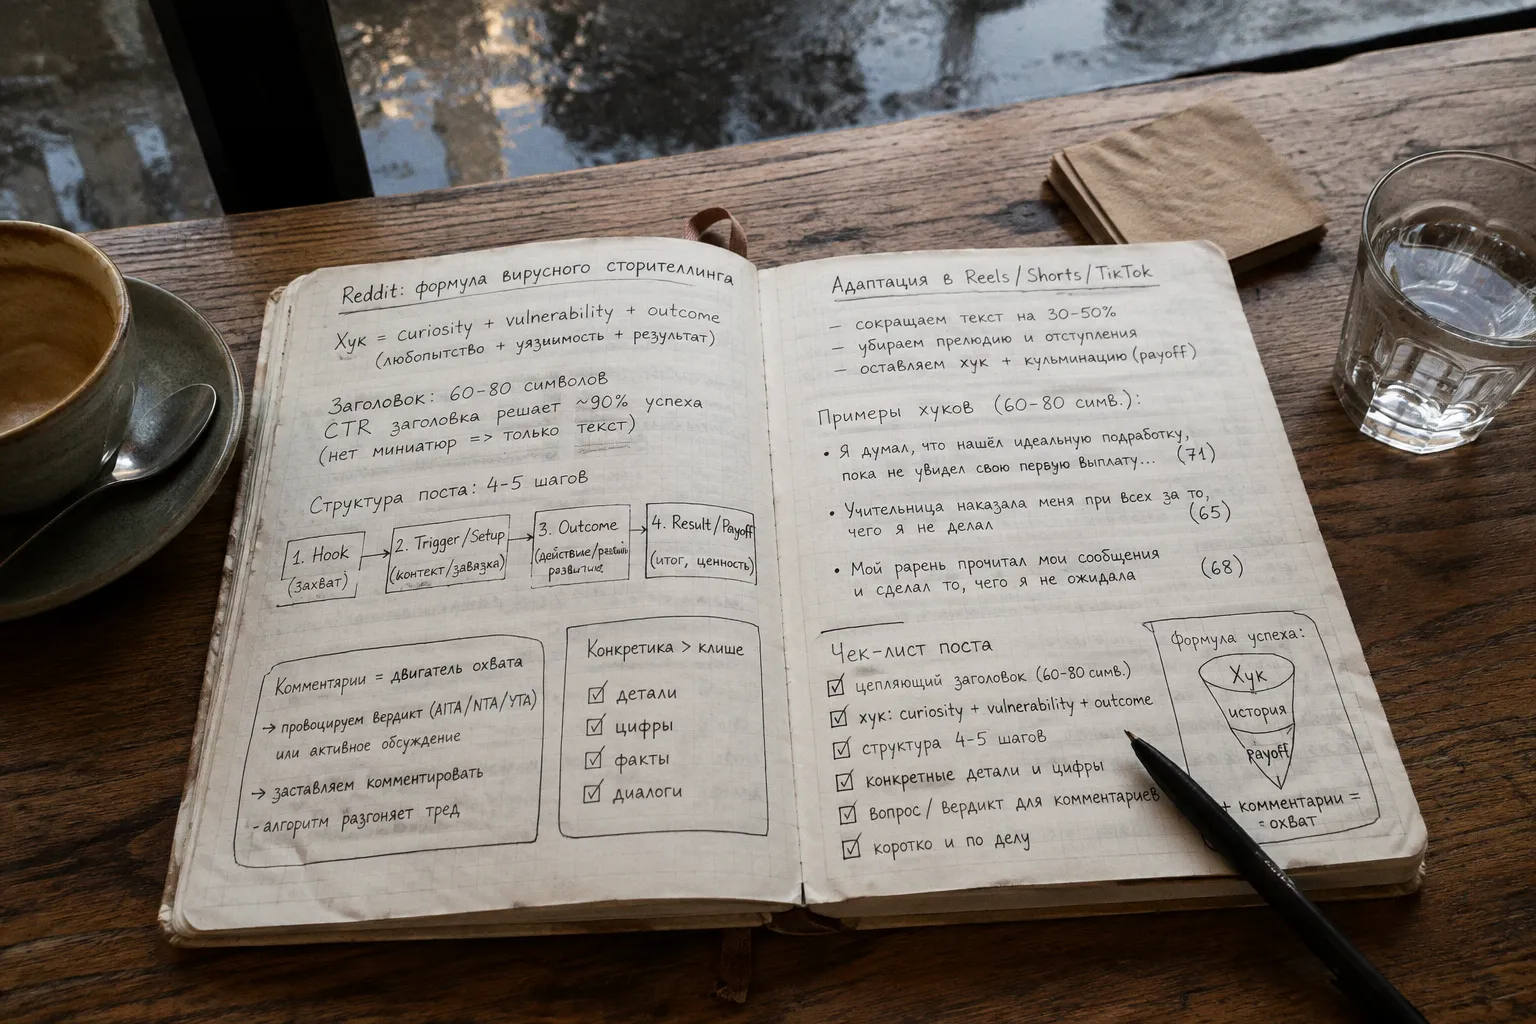 Reddit: формула вирусного сторителлинга
Хук = curiosity + vulnerability + outcome
(любопытство + уязиимость + результат)
Заголовок: 60-80 символов
CTR заголовка решает ~90% успеха
(нет миниатюр => только текст)
Структура поста: 4-5 шагов
1. Hook
(захват)
2. Trigger/Setup
(контект/завязка)
3. Outcome
(действие/
4. Result/Payoff
(итог, ценность)
Комментарии = двигатель охвата
→ провоцируем вердикт (AITA/NTA/YTA)
или активное обсуждение
→ заставляем комментировать
- алгоритм разгоняет тред
Конкретика > клише
☑ детали
☑ цифры
☑ факты
☑ диалоги
Адаптация в Reels/Shorts/TikTok
— сокращаем текст на 30-50%
— убираем прелюдию и отступления
— оставляем хук + кульминацию (payoff)
Примеры хуков (60-80 симв.):
• Я думал, что нашёл идеальную подработку,
пока не увидел свою первую выплату... (71)
• Учительница наказала меня при всех за то,
чего я не делал (65)
• Мой рарень прочитал мои сообщения
и сделал то, чего я не ожидала (68)
Чек-лист поста
☑ цепляющий заголовок (60-80 симв.)
☑ хук: curiosity + vulnerability + outcome
☑ структура 4-5 шагов
☑ конкретные детали и цифры
☑ вопрос/вердикт для комментариев
☑ коротко и по делу
Формула успеха:
Хук
история
Payoff
+ комментарии =
= охват